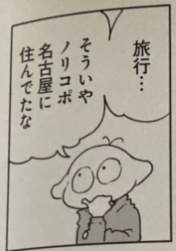 旅行…
そういや
ノリコポ
名古屋に
住んでたな